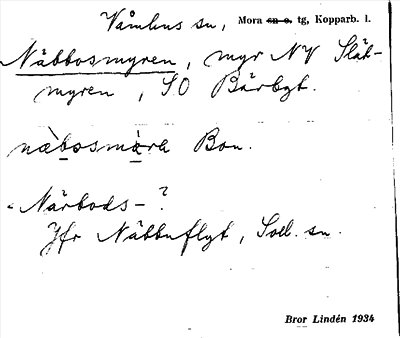 Våmhus sn, Mora sn o. tg, Kopparb. l.
Näbbosmyren, myr NV Slät-
myren, SO Bärbgt.
næ̀bosmàrę Bon.
Närbods- ?
Jfr Näbbuflyt, Soll. sn.
Bror Lindén 1934